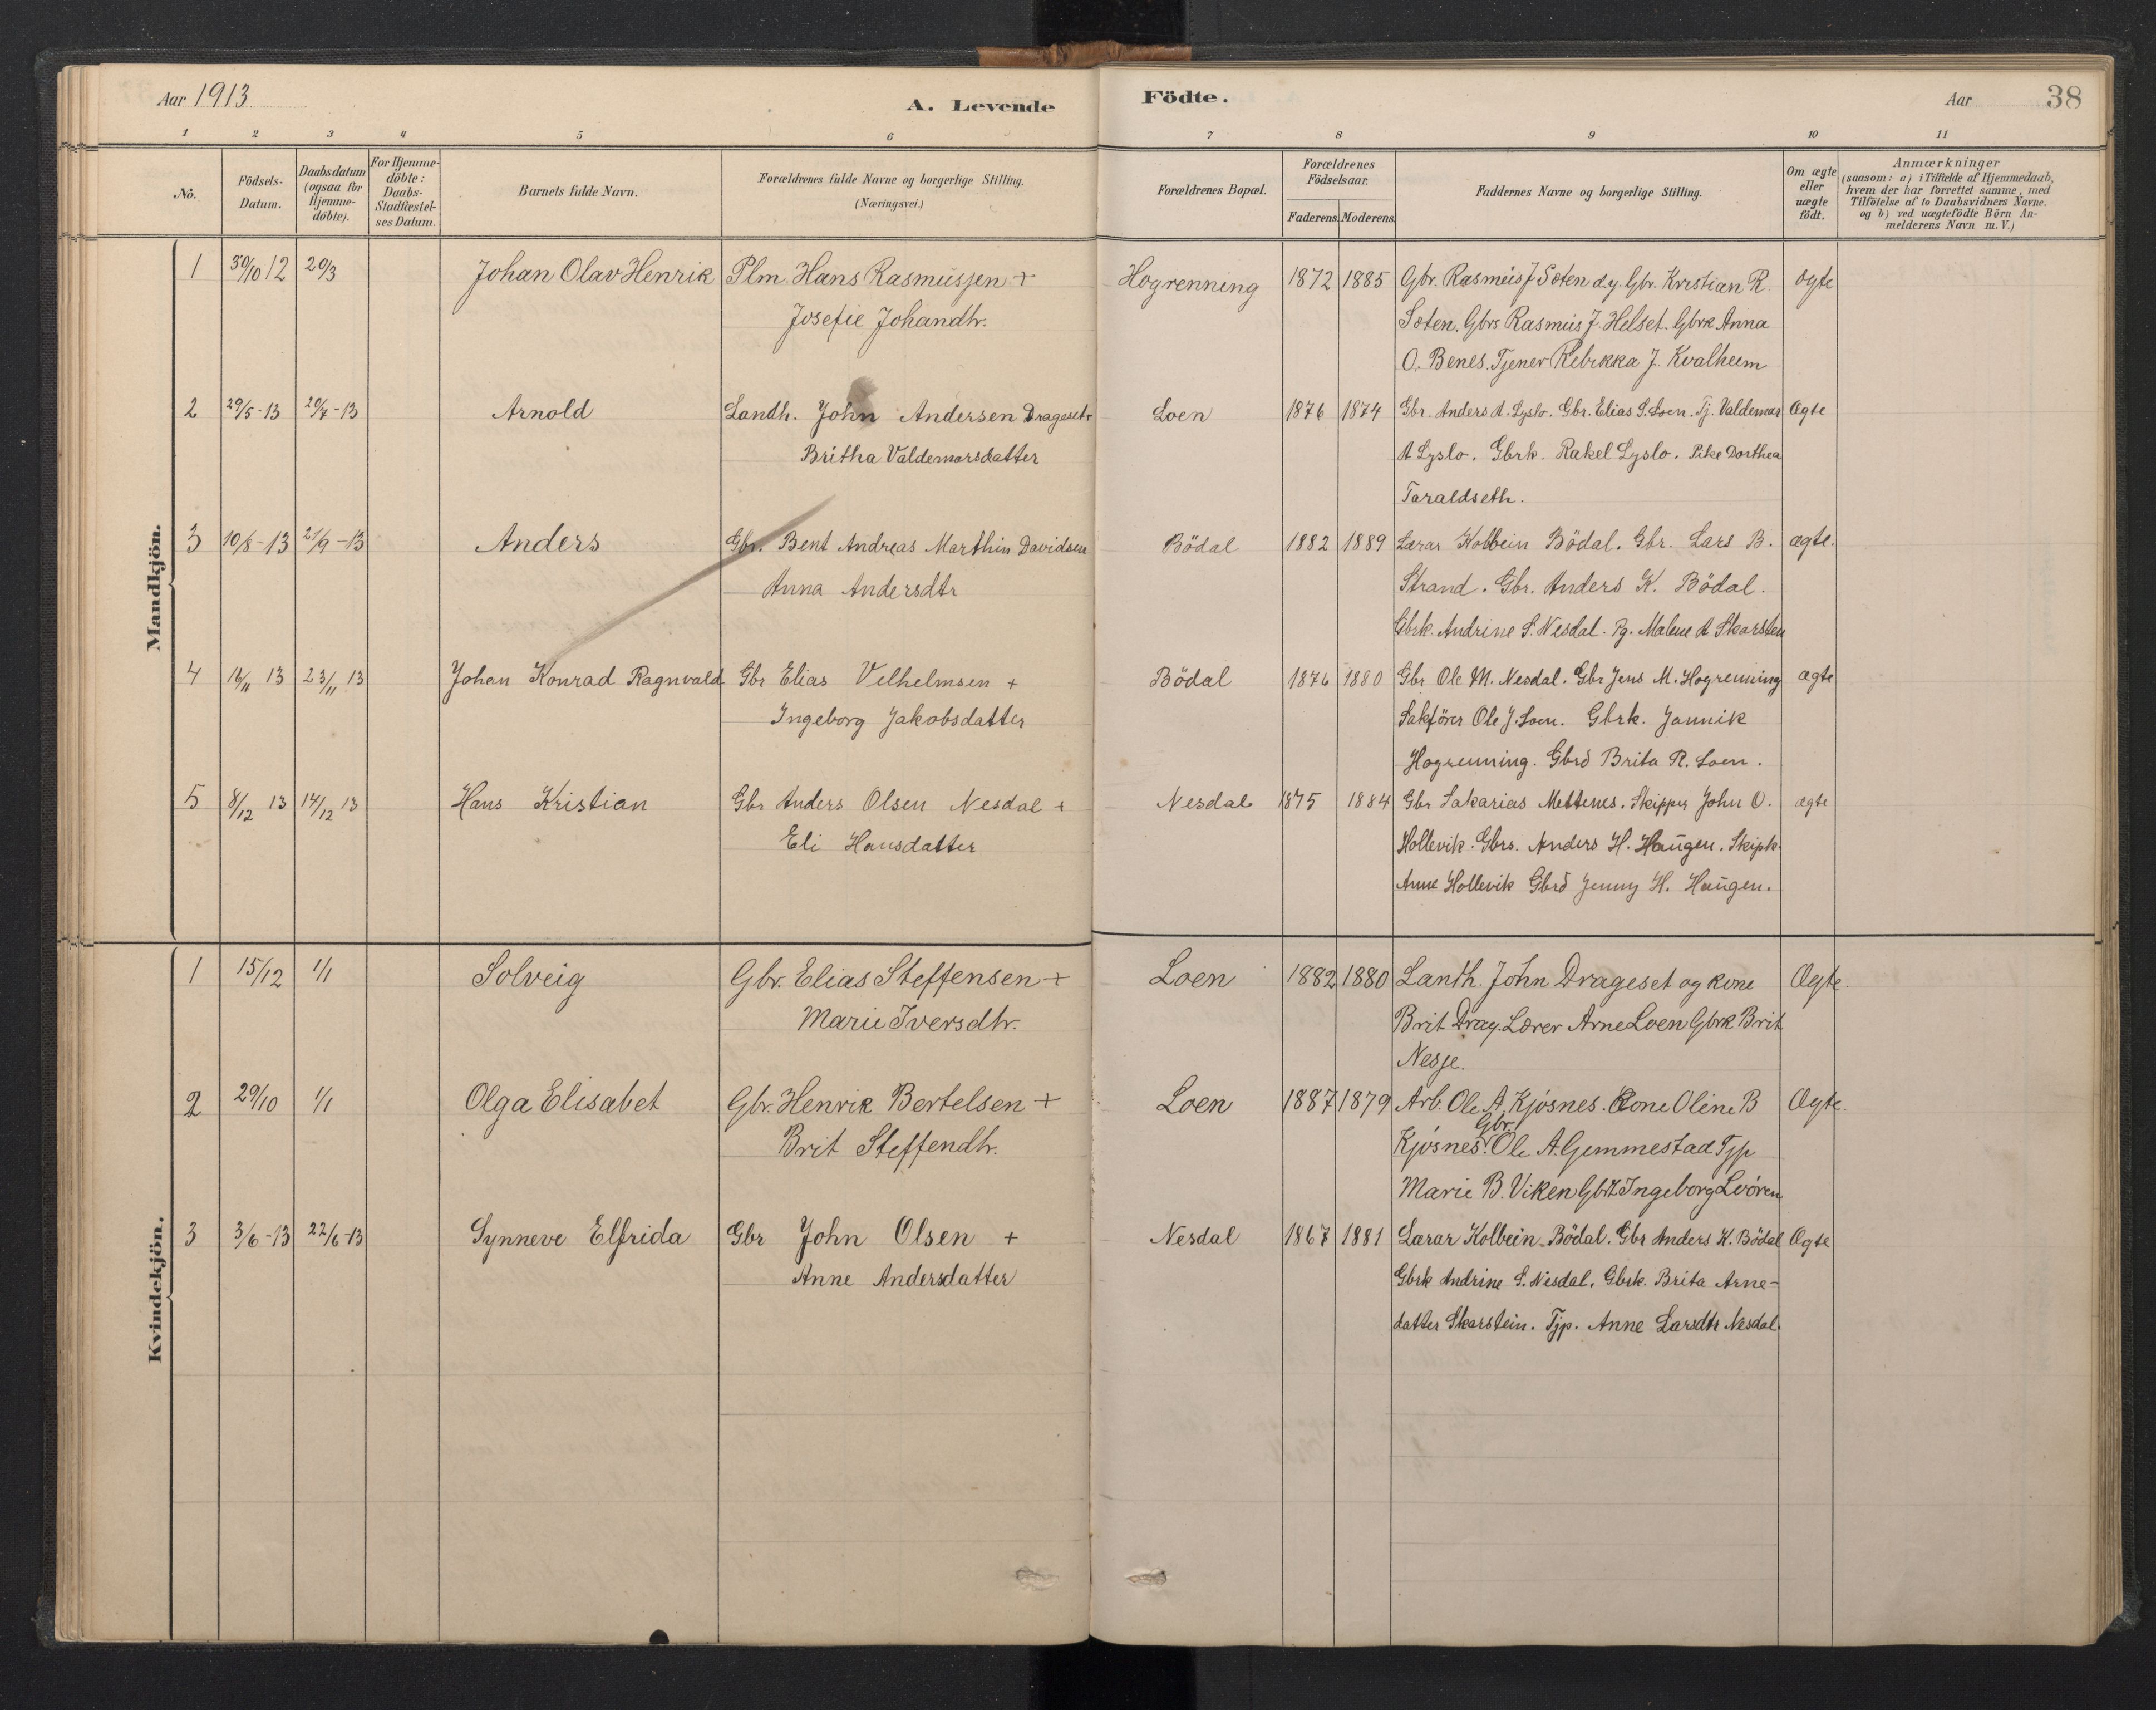 Aar 1913
A. Levende Födte.
Aar 38
1 2 3 4 5 6 7 8 9 10 11
No. Födsels-Datum. Daabsdatum (ogsaa for Hjemme-döbte). For Hjemme-döbte: Daabs-Stadfæstel-ses Datum. Barnets fulde Navn. Forældrenes fulde Navne og borgerlige Stilling. (Næringsvei.) Forældrenes Bopæl. Forældrenes Födselsaar. Faderens. Moderens. Faddernes Navne og borgerlige Stilling. Om ægte eller uægte födt. Anmærkninger (saasom: a) i Tilfælde af Hjemmedaab, hvem der har forrettet samme, med Tilföielse af to Daabsvidners Navne. og b) ved uægtefödte Börn An-melderens Navn m. V.)
Mandkjön.
1 30/10 12 20/3 Johan Olav Henrik Plm. Hans Rasmussen + Hogrenning 1872 1885 Gbr. Rasmus J Sæten d.y. Gbr. Kristian R. ægte
Josefie Johandtr. Sæten. Gbrs Rasmus J. Helset. Gbrk Anna
O. Benes. Tjener Rebekka J. Kvalheim
2 29/5-13 20/7-13 Arnold Landh. John Andersen Drageset + Loen 1876 1874 Gbr. Anders A. Lyslo. Gbr. Elias S. Loen. Tj. Valdemar Ægte
Britha Valdemarsdatter A Lyslo. Gbrk. Rakel Lyslo. Pike Dorthea
Taraldseth.
3 10/8-13 21/9-13 Anders Gbr. Bent Andreas Marthin Davidsen Bödal 1882 1889 Lærar Kolbein Bödal. Gbr. Lars B. ægte.
Anna Andersdtr Strand. Gbr. Anders K. Bödal.
Gbrk. Andrine S. Nesdal. Pg. Malene A Skarsten
4 13 23/11 13 Johan Konrad Ragnvald Gbr Elias Velhelmsen + Bödal 1876 1880 Gbr Ole M. Nesdal. Gbr Jens M. Hogrenning ægte
Ingeborg Jakobsdatter Sakförer Ole J. Loen. Gbrk. Jannik
Hogrenning. Gbrd Brita R. Loen.
5 8/12 13 14/12 13 Hans Kristian Gbr Anders Olsen Nesdal + Nesdal 1875 1884 Gbr Sakarias Mettenes. Skipper John O. ægte
Eli Hansdatter Hollevik. Gbrs. Anders H. Haugen. Skipk.
Anne Hollevik Gbrd Jenny H. Haugen.
Kvindekjön.
1 15/12 1/1 Solveig Gbr. Elias Steffensen + Loen 1882 1880 Landh. John Drageset og kone Ægte.
Marie Iversdtr. Brit Drag. Lærer Arne Loen Gbrk Brit
Nesje.
2 29/10 1/1 Olga Elisabet Gbr. Henrik Bertelsen + Loen 1887 1879 Arb. Ole A. Kjösnes. Kone Oline B Ægte.
Brit Steffendtr. Kjösnes. Gbr. Ole A. Gjemmestad Tjp
Marie B. Viken Gbrk Ingeborg Loören
3 3/6-13 22/6-13 Synneve Elfrida Gbr John Olsen + Nesdal 1867 1881 Lærar Kolbein Bödal. Gbr Anders K. Bödal Ægte
Anne Andersdatter Gbrk Andrine S. Nesdal. Gbrk. Brita Arne-
datter Skarstein. Tjp. Anne Larsdtr Nesdal.